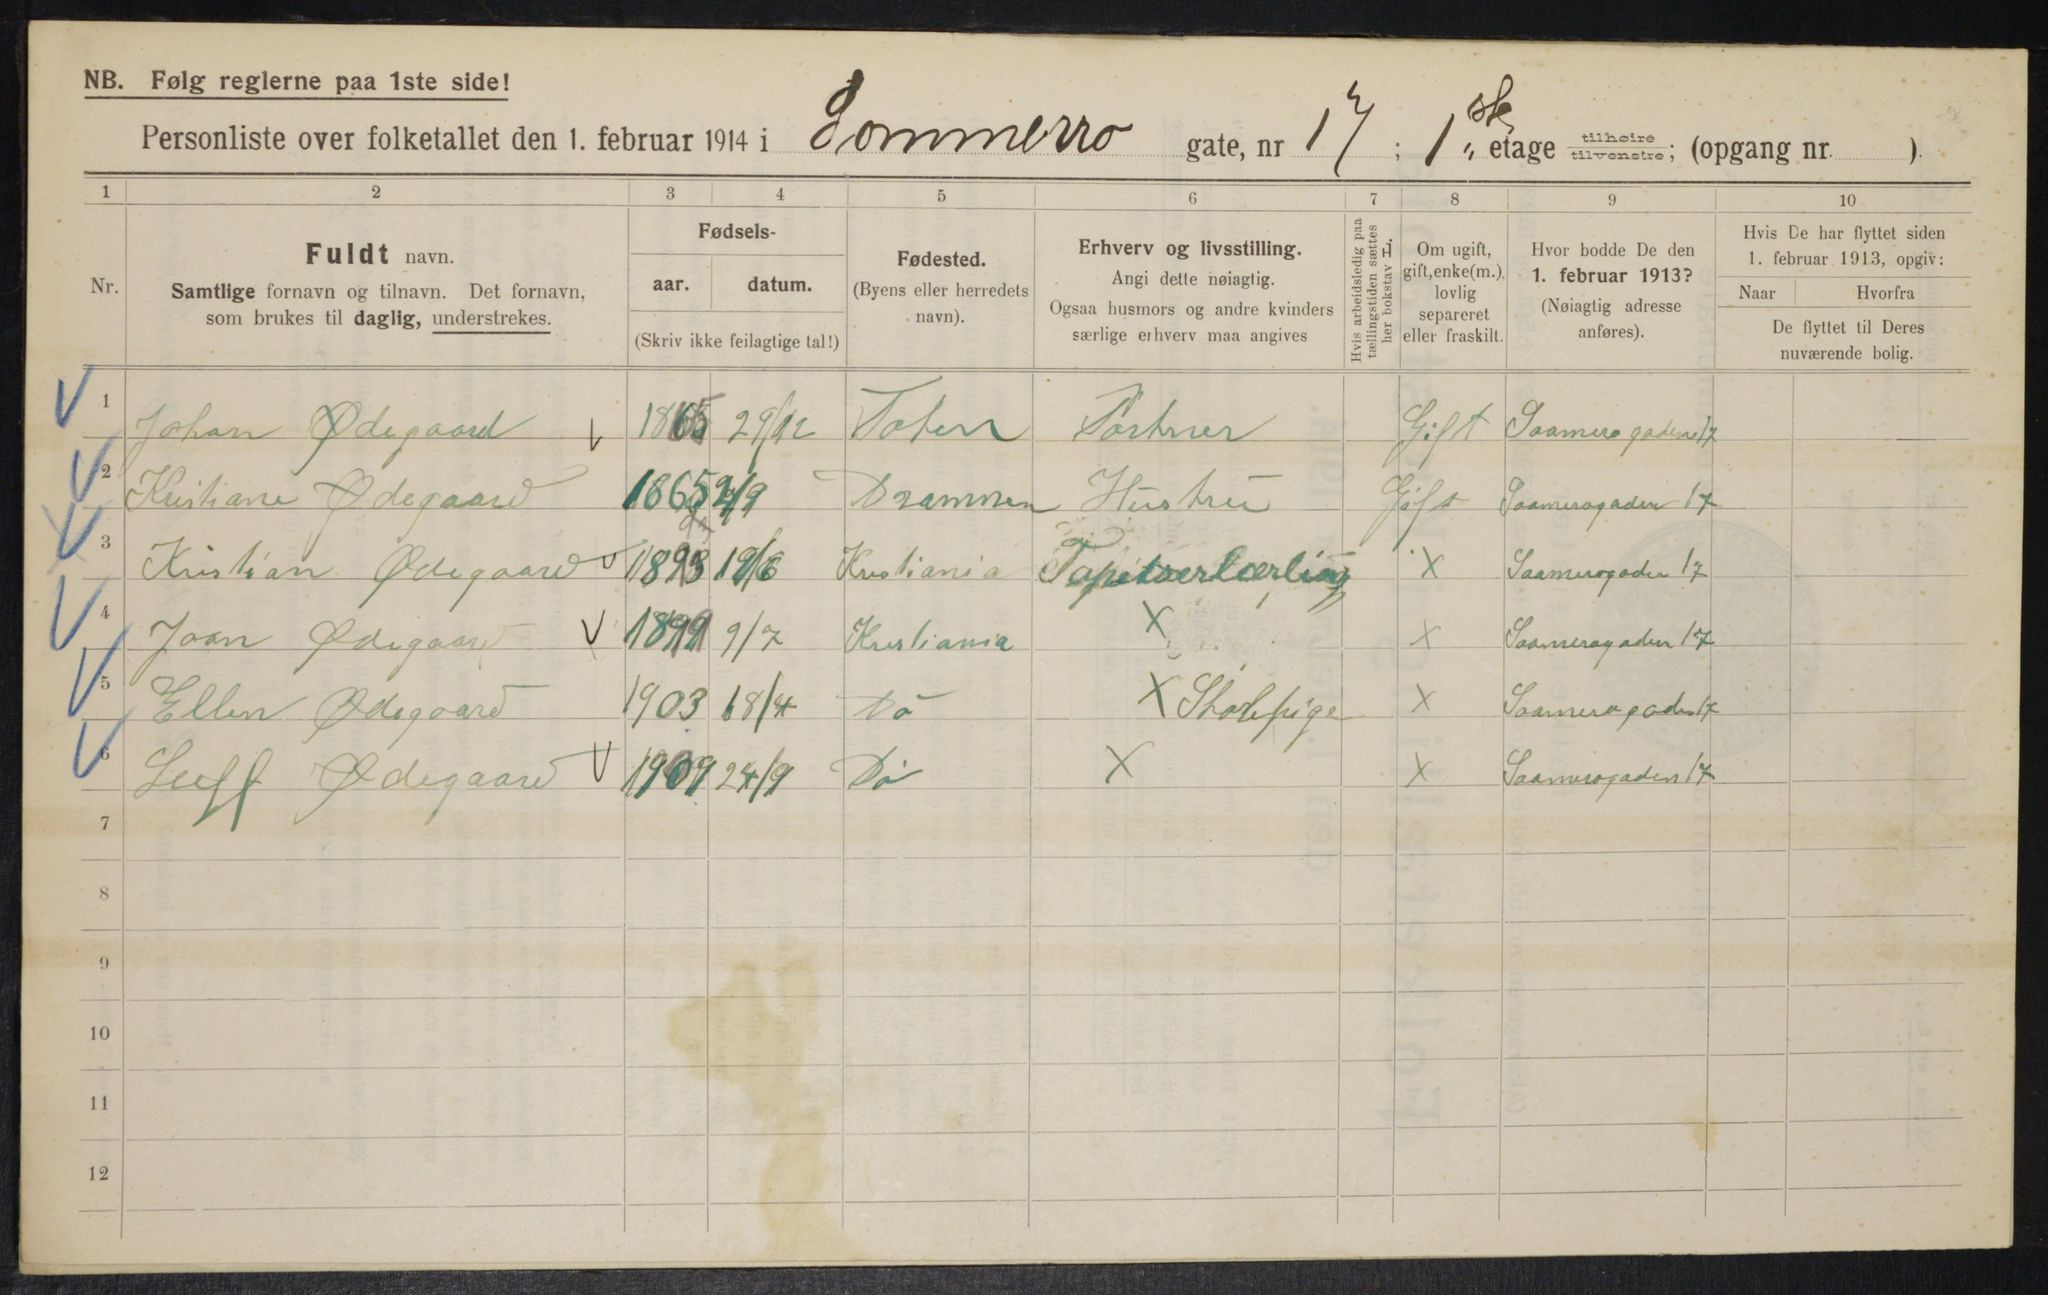 NB. Følg reglerne paa 1ste side!
Personliste over folketallet den 1. februar 1914 i Sommerro gate, nr 17 ; 1ste etage tilhøire tilvenstre; (opgang nr. ).
1 2 3 4 5 6 7 8 9 10
Nr.
Fuldt navn.
Samtlige fornavn og tilnavn. Det fornavn,
som brukes til daglig, understrekes.
Fødsels-
aar. datum.
(Skriv ikke feilagtige tal!)
Fødested.
(Byens eller herredets
navn).
Erhverv og livsstilling.
Angi dette nøiagtig.
Ogsaa husmors og andre kvinders
særlige erhverv maa angives
Hvis arbeidsledig paa
tællingstiden sættes
her bokstav L.
Om ugift,
gift, enke(m.),
lovlig
separeret
eller fraskilt.
Hvor bodde De den
1. februar 1913?
(Nøiagtig adresse
anføres).
Hvis De har flyttet siden
1. februar 1913, opgiv:
Naar Hvorfra
De flyttet til Deres
nuværende bolig.
1 Johan Ødegaard 1865 29/12 Toten Gift Saamerogaden 17
2 Kristiane Ødegaard 1865 2/9 Drammen Hustru Gift Saamerogaden 17
3 Kristian Ødegaard 1893 19/6 Kristiania Tapetserlærling X Saamerogaden 17
4 Joan Ødegaard 1899 9/7 Kristiania X X Saamerogaden 17
5 Ellen Ødegaard 1903 18/4 Do X Skolepige X Saamerogaden 17
6 Leiff Ødegaard 1909 24/9 Do X X Saamerogaden 17
7
8
9
10
11
12